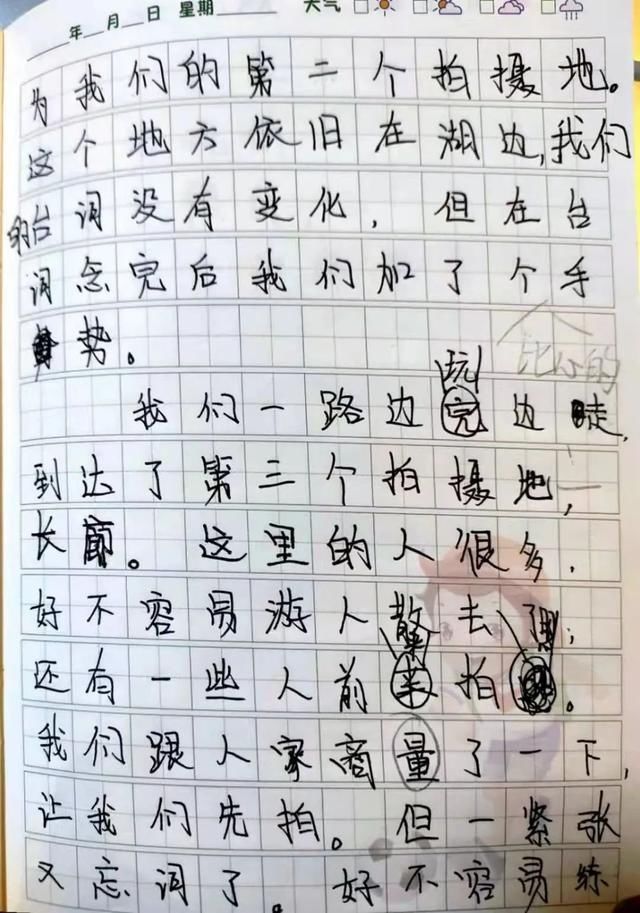 年 月 日 星期 天气
为我们的第二个拍摄地。
这个地方依旧在湖边,我们
的台词没有变化,但在台
词念完后我们加了个手
势。
个比心的
玩
我们一路边完边走,
到达了第三个拍摄地,
长廊。这里的人很多,
好不容易游人散去,
还有一些人前来拍。
我们跟人家商量了一下,
让我们先拍。但一紧张
又忘词了。好不容易练